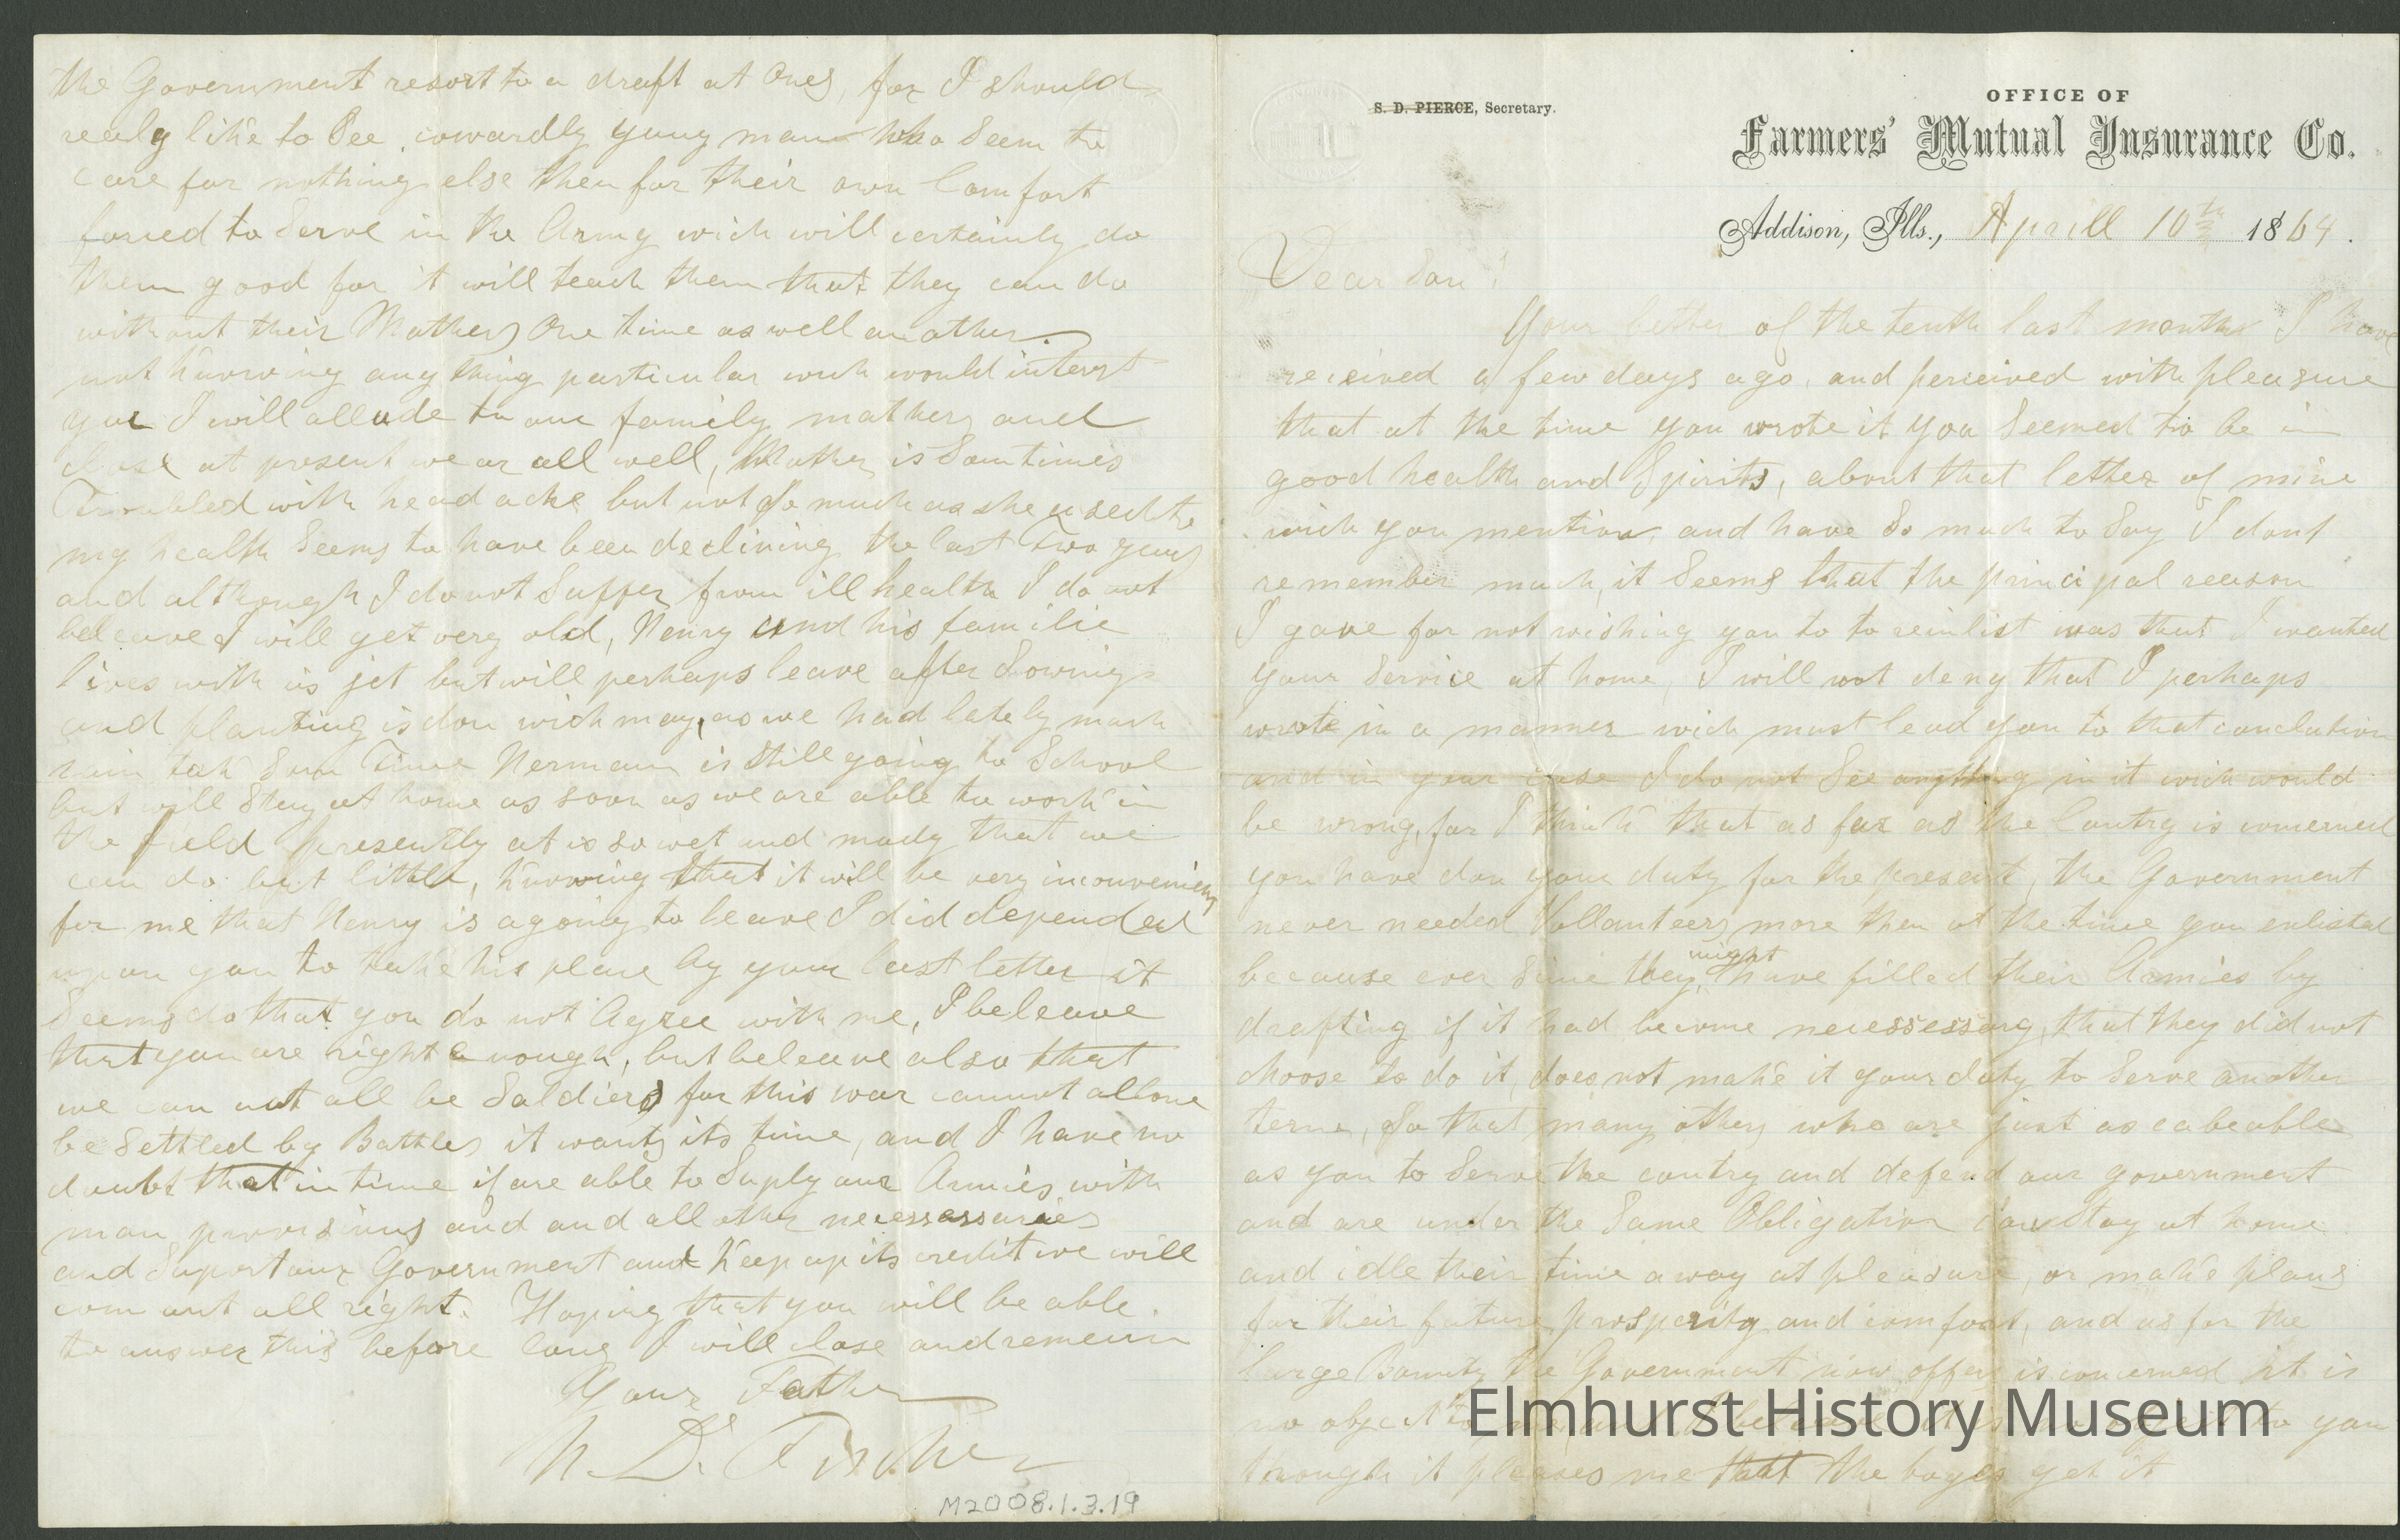 S. D. PIERCE, Secretary.
OFFICE OF
Farmers' Mutual Insurance Co.
Addison, Ills., Aprill 10th 1864.
Dear Son!
Your letter of the tenth last month I have
received a few days ago, and perceived with pleasure
that at the time you wrote it you seemed to be in
good health and Spirits, about that letter of mine
wich you mention, and have so much to Say I dont
remember much, it Seems that the principal reason
I gave for not wishing you to to reinlist was that I wanted
your Service at home, I will not deny that I perhaps
wrote in a manner wich must lead you to that conclution
and in your case I do not See anything in it wich would
be wrong, for I think that as far as the Contry is concerned
you have don your duty for the present, the Government
never needed Vollanteers more then at the time you enlisted
because ever Sinc they might have filled their Armies by
drafting if it had become necessessary, that they did not
choose to do it, does not make it your duty to Serve another
terme, So that many others who are just as cabeable
as you to Serve the contry and defend our government
and are under the Same Obligation can Stay at home
and idle their time away at pleasure, or make plans
for their future prosperity and comfort, and as for the
large Bounty the Government now offers is concerned it is
no object to me, and I beleave it is no object to you
though it pleases me that the boys get it
the Government resort to a draft at Ones, for I should
realy like to See, cowardly yung man who Seem to
care for nothing else then for their own Comfort
forced to Serve in the Army wich will certainly do
them good for it will teach them that they can do
without their Mothers One time as well another.
not knowing any thing particular wich would interest
you I will allude to our family mathers and
close at present we ar all well, Mother is Somtimes
Troubled with head ache but not So much as she used to
my health Seems to have been declining the last Two years
and although I do not Suffer from ill health I do not
beleave I will get very old, Henry and his familie
lives with us jet but will perhaps leave after Sowing
and planting is don wich may, as we had lately much
rain tak Som Time Herman is still going to School
but will Stay at home as soon as we are able to work in
the field presently at is so wet and mudy that we
can do but little, knowing that it will be very inconvenient
for me that Henry is agoing to leave I did depended
upon you to take his place by your last letter it
Seems do that you do not Agree with me, I beleave
that you are right enough, but beleave also that
we can not all be Soldiers for this war cannot allone
be Settled by Battles it wants its time, and I have no
doubt that in time if are able to Suply our Armies with
man provisions and and all other necessessaries
and Suport our Government and keep up its credit we will
com out all right. Hoping that you will be able
to answer this before long I will close and remain
Your Father
H. D. Fischer
M2008.1.3.19
Elmhurst History Museum